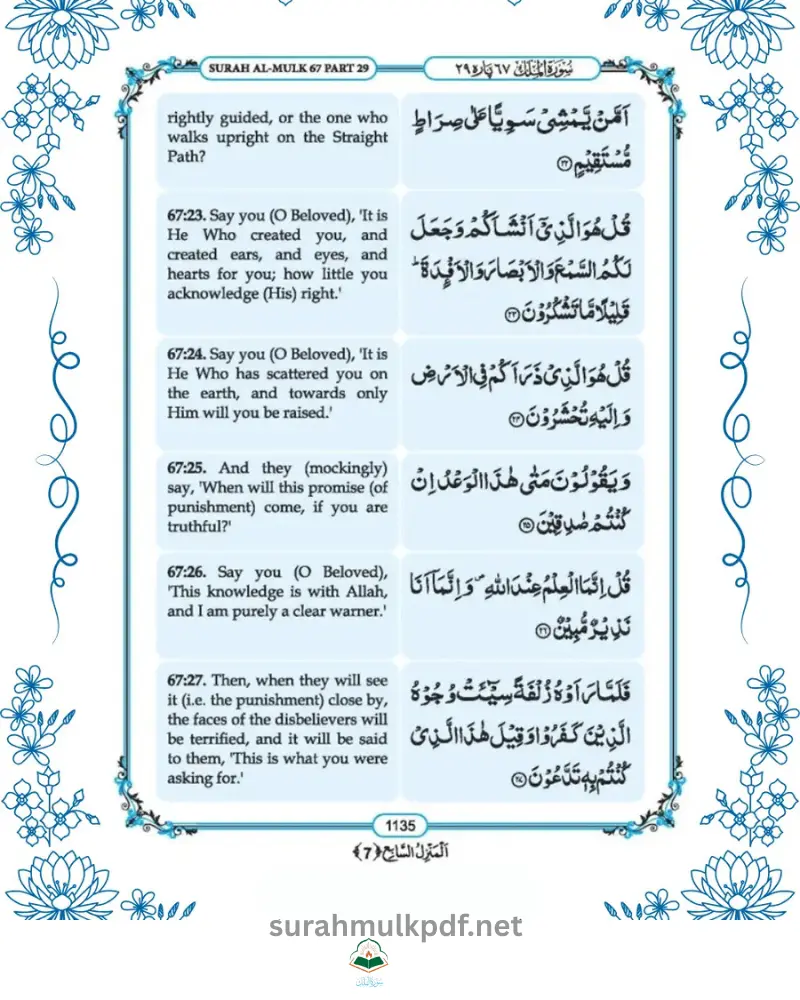 SURAH AL-MULK 67 PART 29
سُوْرَةُ الْمُلْك ٦٧ پارہ ٢٩
rightly guided, or the one who
walks upright on the Straight
Path?
اَمَّنْ يَّمْشِىْ سَوِيًّا عَلٰى صِرَاطٍ
مُّسْتَقِيْمٍ ٢٢
67:23. Say you (O Beloved), 'It is
He Who created you, and
created ears, and eyes, and
hearts for you; how little you
acknowledge (His) right.'
قُلْ هُوَ الَّذِىْٓ اَنْشَاَكُمْ وَجَعَلَ
لَكُمُ السَّمْعَ وَالْاَبْصَارَ وَالْاَفْـِٕدَةَ ؕ
قَلِيْلًا مَّا تَشْكُرُوْنَ ٢٣
67:24. Say you (O Beloved), 'It is
He Who has scattered you on
the earth, and towards only
Him will you be raised.'
قُلْ هُوَ الَّذِىْ ذَرَاَكُمْ فِى الْاَرْضِ
وَاِلَيْهِ تُحْشَرُوْنَ ٢٤
67:25. And they (mockingly)
say, 'When will this promise (of
punishment) come, if you are
truthful?'
وَيَقُوْلُوْنَ مَتٰى هٰذَا الْوَعْدُ اِنْ
كُنْتُمْ صٰدِقِيْنَ ٢٥
67:26. Say you (O Beloved),
'This knowledge is with Allah,
and I am purely a clear warner.'
قُلْ اِنَّمَا الْعِلْمُ عِنْدَ اللّٰهِ ۪ وَاِنَّمَاۤ اَنَا
نَذِيْرٌ مُّبِيْنٌ ٢٦
67:27. Then, when they will see
it (i.e. the punishment) close by,
the faces of the disbelievers will
be terrified, and it will be said
to them, 'This is what you were
asking for.'
فَلَمَّا رَاَوْهُ زُلْفَةً سِيْٓـَٔتْ وُجُوْهُ
الَّذِيْنَ كَفَرُوْا وَقِيْلَ هٰذَا الَّذِىْ
كُنْتُمْ بِهٖ تَدَّعُوْنَ ٢٧
1135
اَلْمَنْزِلُ السَّابِع ﴿7﴾
surahmulkpdf.net